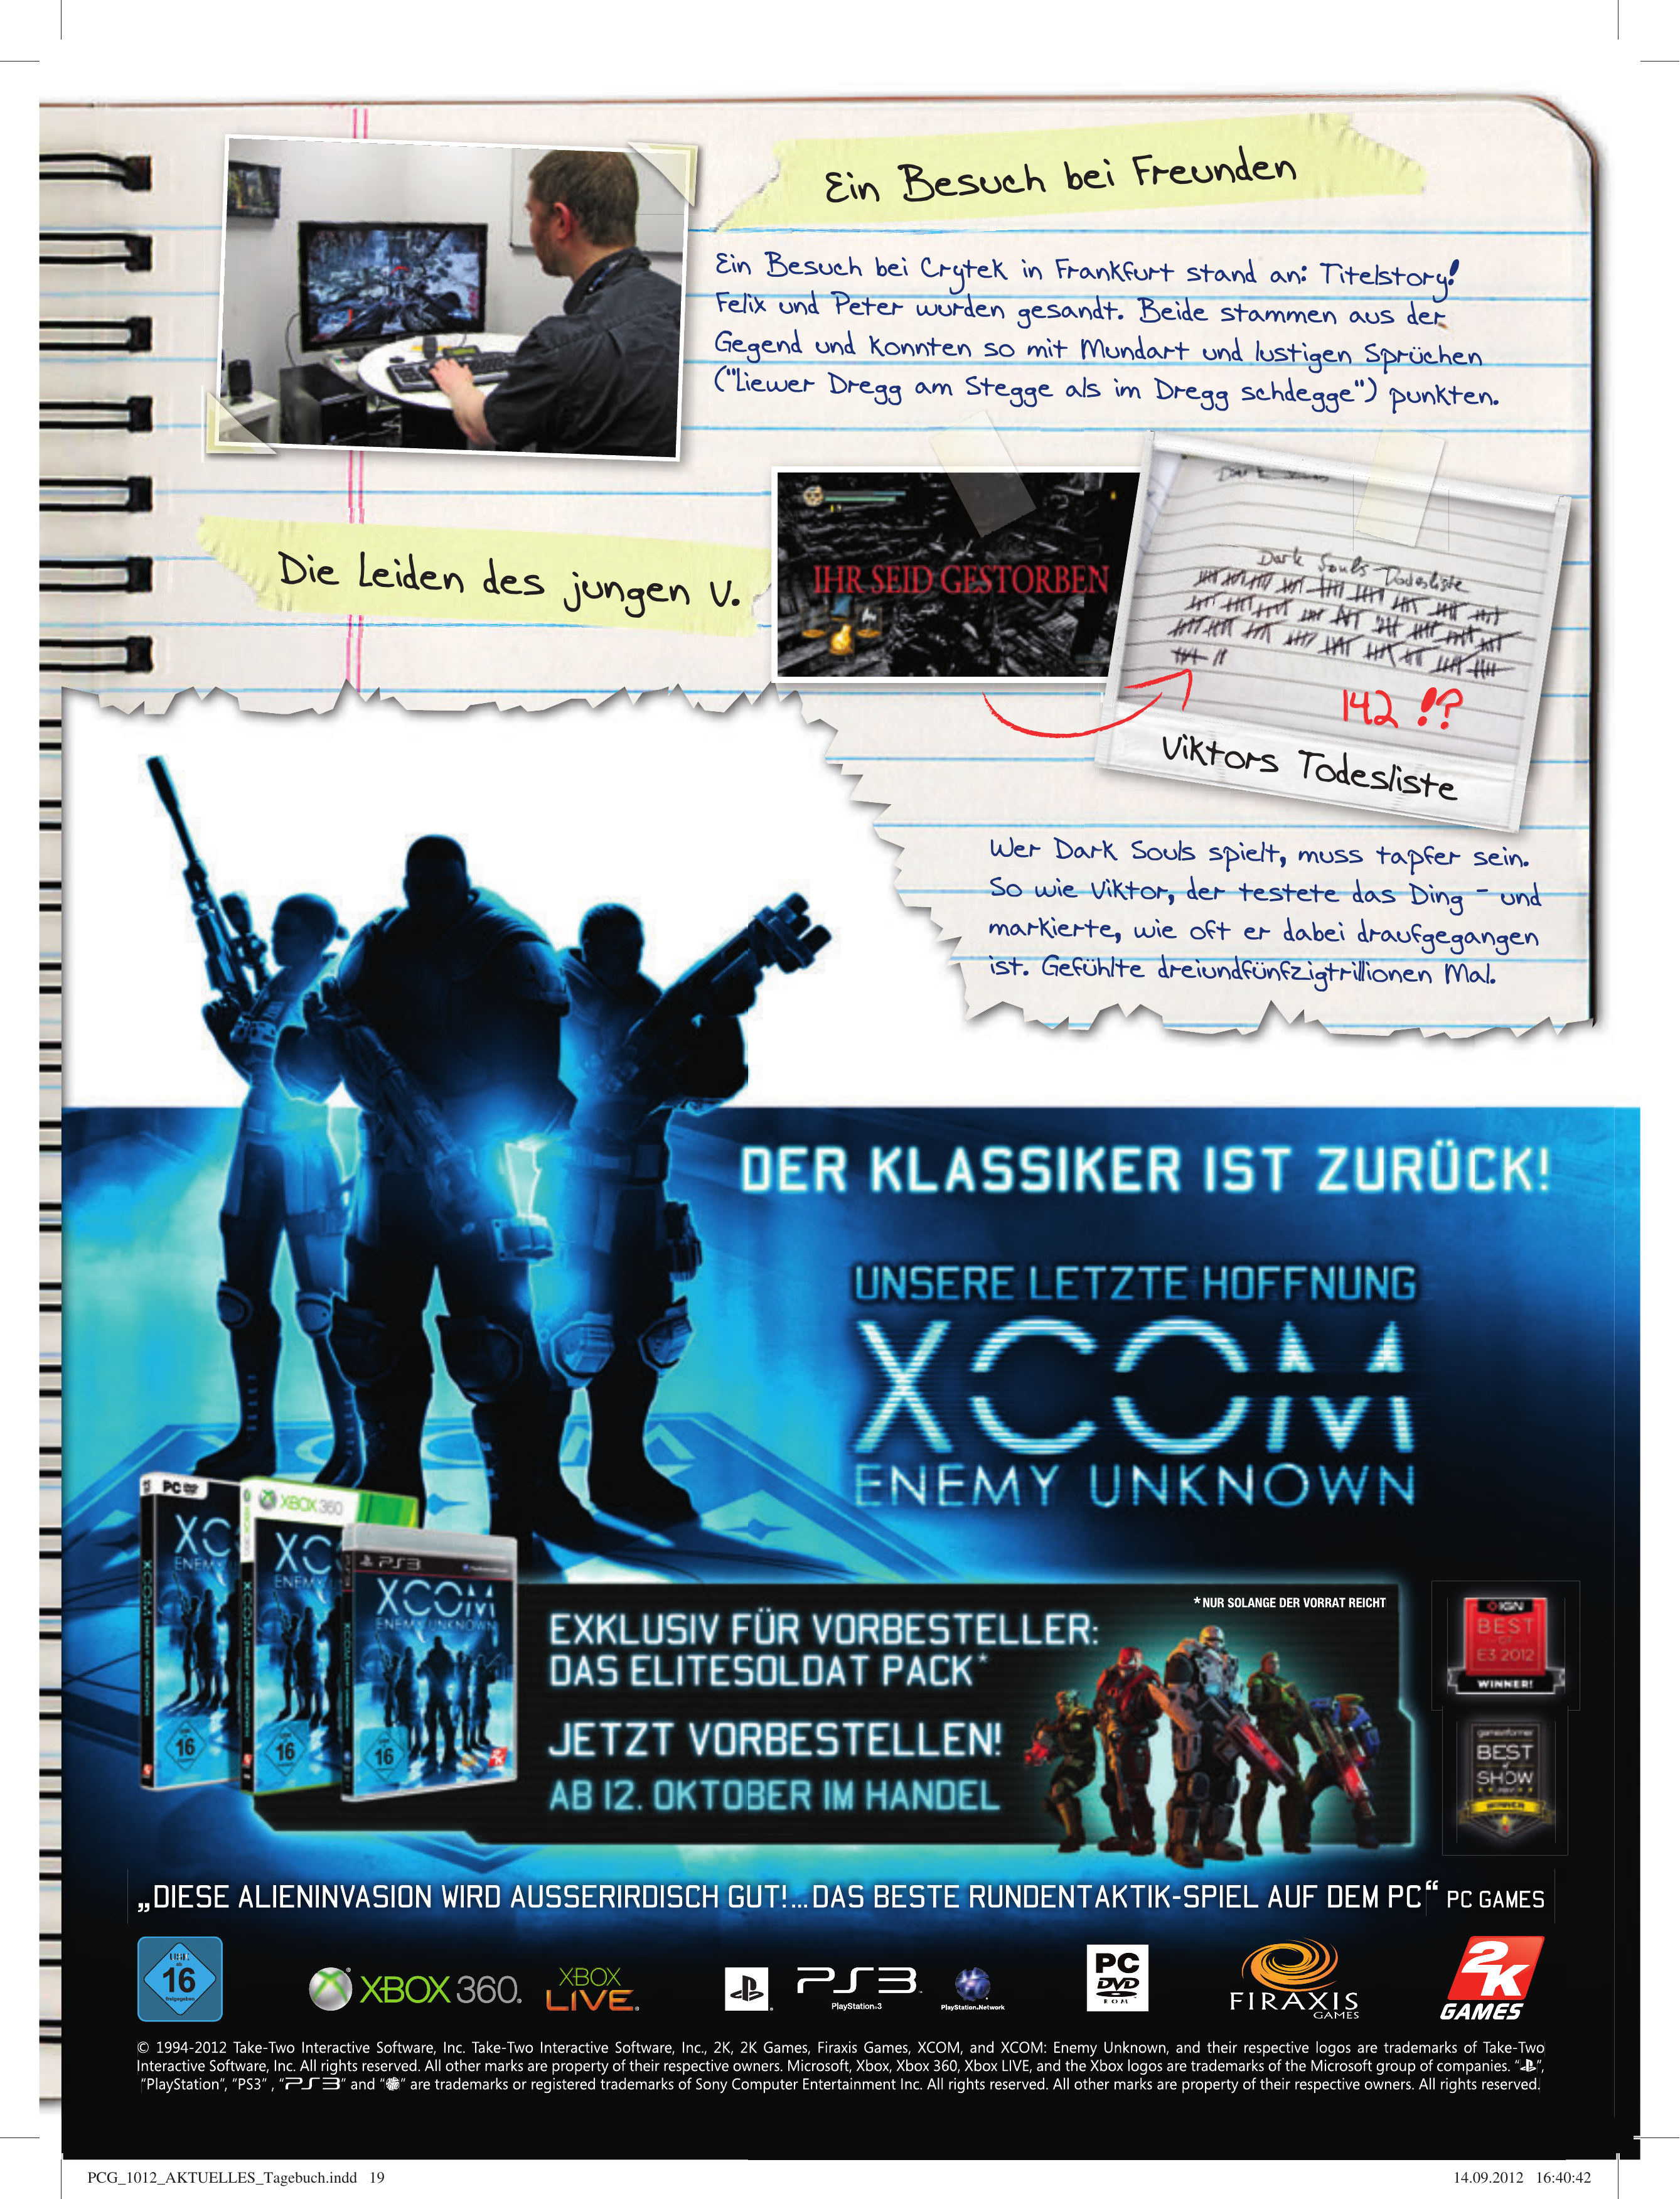 Ein Besuch bei Freunden
Ein Besuch bei Crytek in Frankfurt stand an: Titelstory!
Felix und Peter wurden gesandt. Beide stammen aus der
Gegend und konnten so mit Mundart und lustigen Sprüchen
("Liewer Dregg am Stegge als im Dregg schdegge") punkten.
Die Leiden des jungen V.
IHR SEID GESTORBEN
Dark Souls
Dark Souls Todesliste
142 !?
Viktors Todesliste
Wer Dark Souls spielt, muss tapfer sein.
So wie Viktor, der testete das Ding – und
markierte, wie oft er dabei draufgegangen
ist. Gefühlte dreiundfünfzigtrillionen Mal.
DER KLASSIKER IST ZURÜCK!
UNSERE LETZTE HOFFNUNG
XCOM
ENEMY UNKNOWN
PC DVD
XC
ENEMY
16
XBOX 360
XC
ENEMY
16
PS3
XCOM
ENEMY UNKNOWN
16
*NUR SOLANGE DER VORRAT REICHT
EXKLUSIV FÜR VORBESTELLER:
DAS ELITESOLDAT PACK*
JETZT VORBESTELLEN!
AB 12. OKTOBER IM HANDEL
IGN
BEST
OF
E3 2012
WINNER!
gameinformer
BEST
of
SHOW
WINNER
„DIESE ALIENINVASION WIRD AUSSERIRDISCH GUT!...DAS BESTE RUNDENTAKTIK-SPIEL AUF DEM PC“ PC GAMES
USK
ab
16
freigegeben
XBOX 360.
XBOX
LIVE
PS3
PlayStation.3
PlayStation.Network
PC
DVD
ROM
FIRAXIS
GAMES
2K
GAMES
© 1994-2012 Take-Two Interactive Software, Inc. Take-Two Interactive Software, Inc., 2K, 2K Games, Firaxis Games, XCOM, and XCOM: Enemy Unknown, and their respective logos are trademarks of Take-Two
Interactive Software, Inc. All rights reserved. All other marks are property of their respective owners. Microsoft, Xbox, Xbox 360, Xbox LIVE, and the Xbox logos are trademarks of the Microsoft group of companies. “ ”,
“PlayStation”, “PS3” , “PS3” and “ ” are trademarks or registered trademarks of Sony Computer Entertainment Inc. All rights reserved. All other marks are property of their respective owners. All rights reserved.
PCG_1012_AKTUELLES_Tagebuch.indd 19
14.09.2012 16:40:42